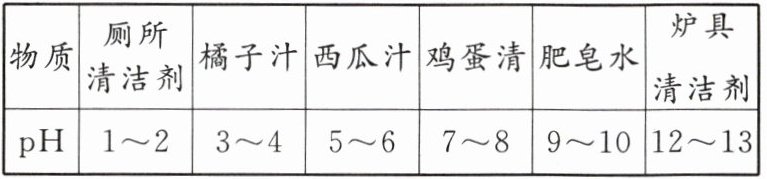 物质 厕所清洁剂 橘子汁 西瓜汁 鸡蛋清 肥皂水 炉具清洁剂
pH 1～2 3～4 5～6 7～8 9～10 12～13